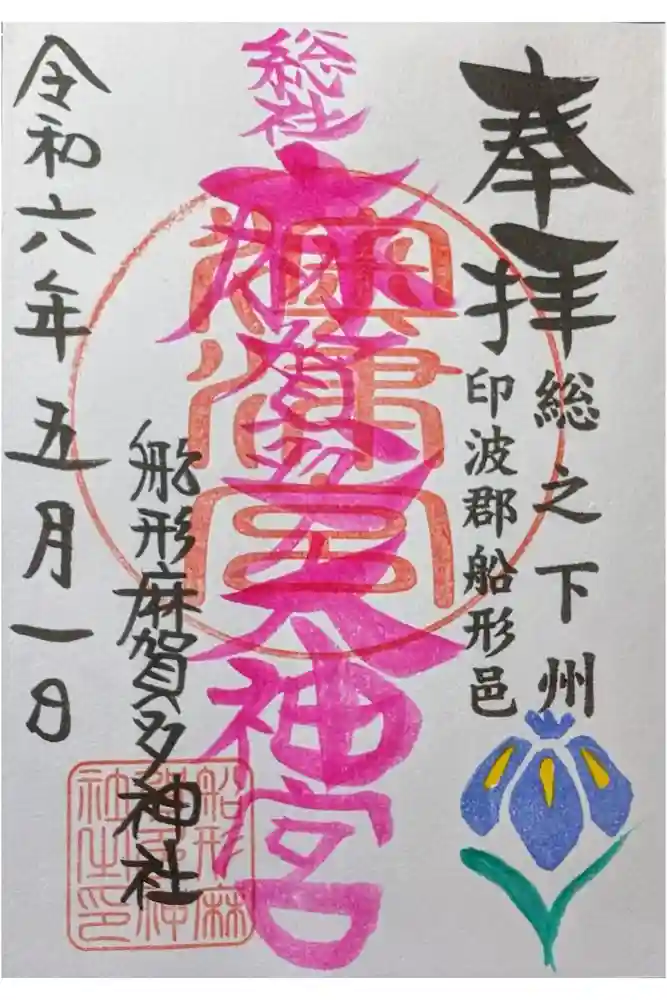 奉拝
総之下州
印波郡船形邑
総社
麻賀多大神宮
奥津宮
船形麻賀多神社
船形麻
神
社之印
令和六年五月一日